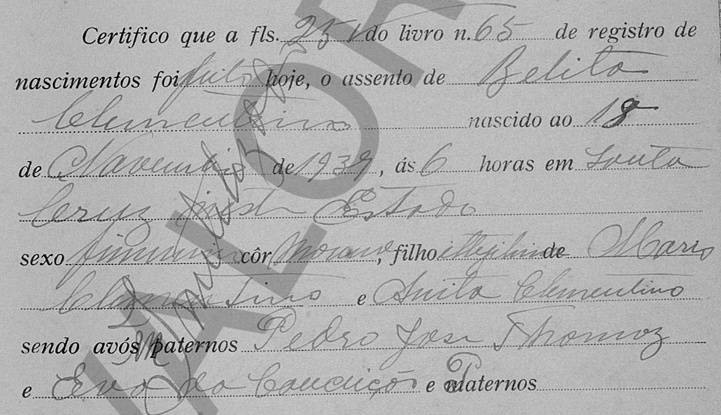 Certifico que a fls. 251 do livro n. 65 de registro de
nascimentos foi feito hoje, o assento de Belita
Clementino nascido ao 18
de Novembro de 1939, ás 6 horas em Santa
Cruz neste Estado
sexo feminino côr morena, filho legitima de Mario
Clementino e Anita Clementino
sendo avós paternos Pedro José Thomaz
e Eva da Conceição e maternos
VALOR